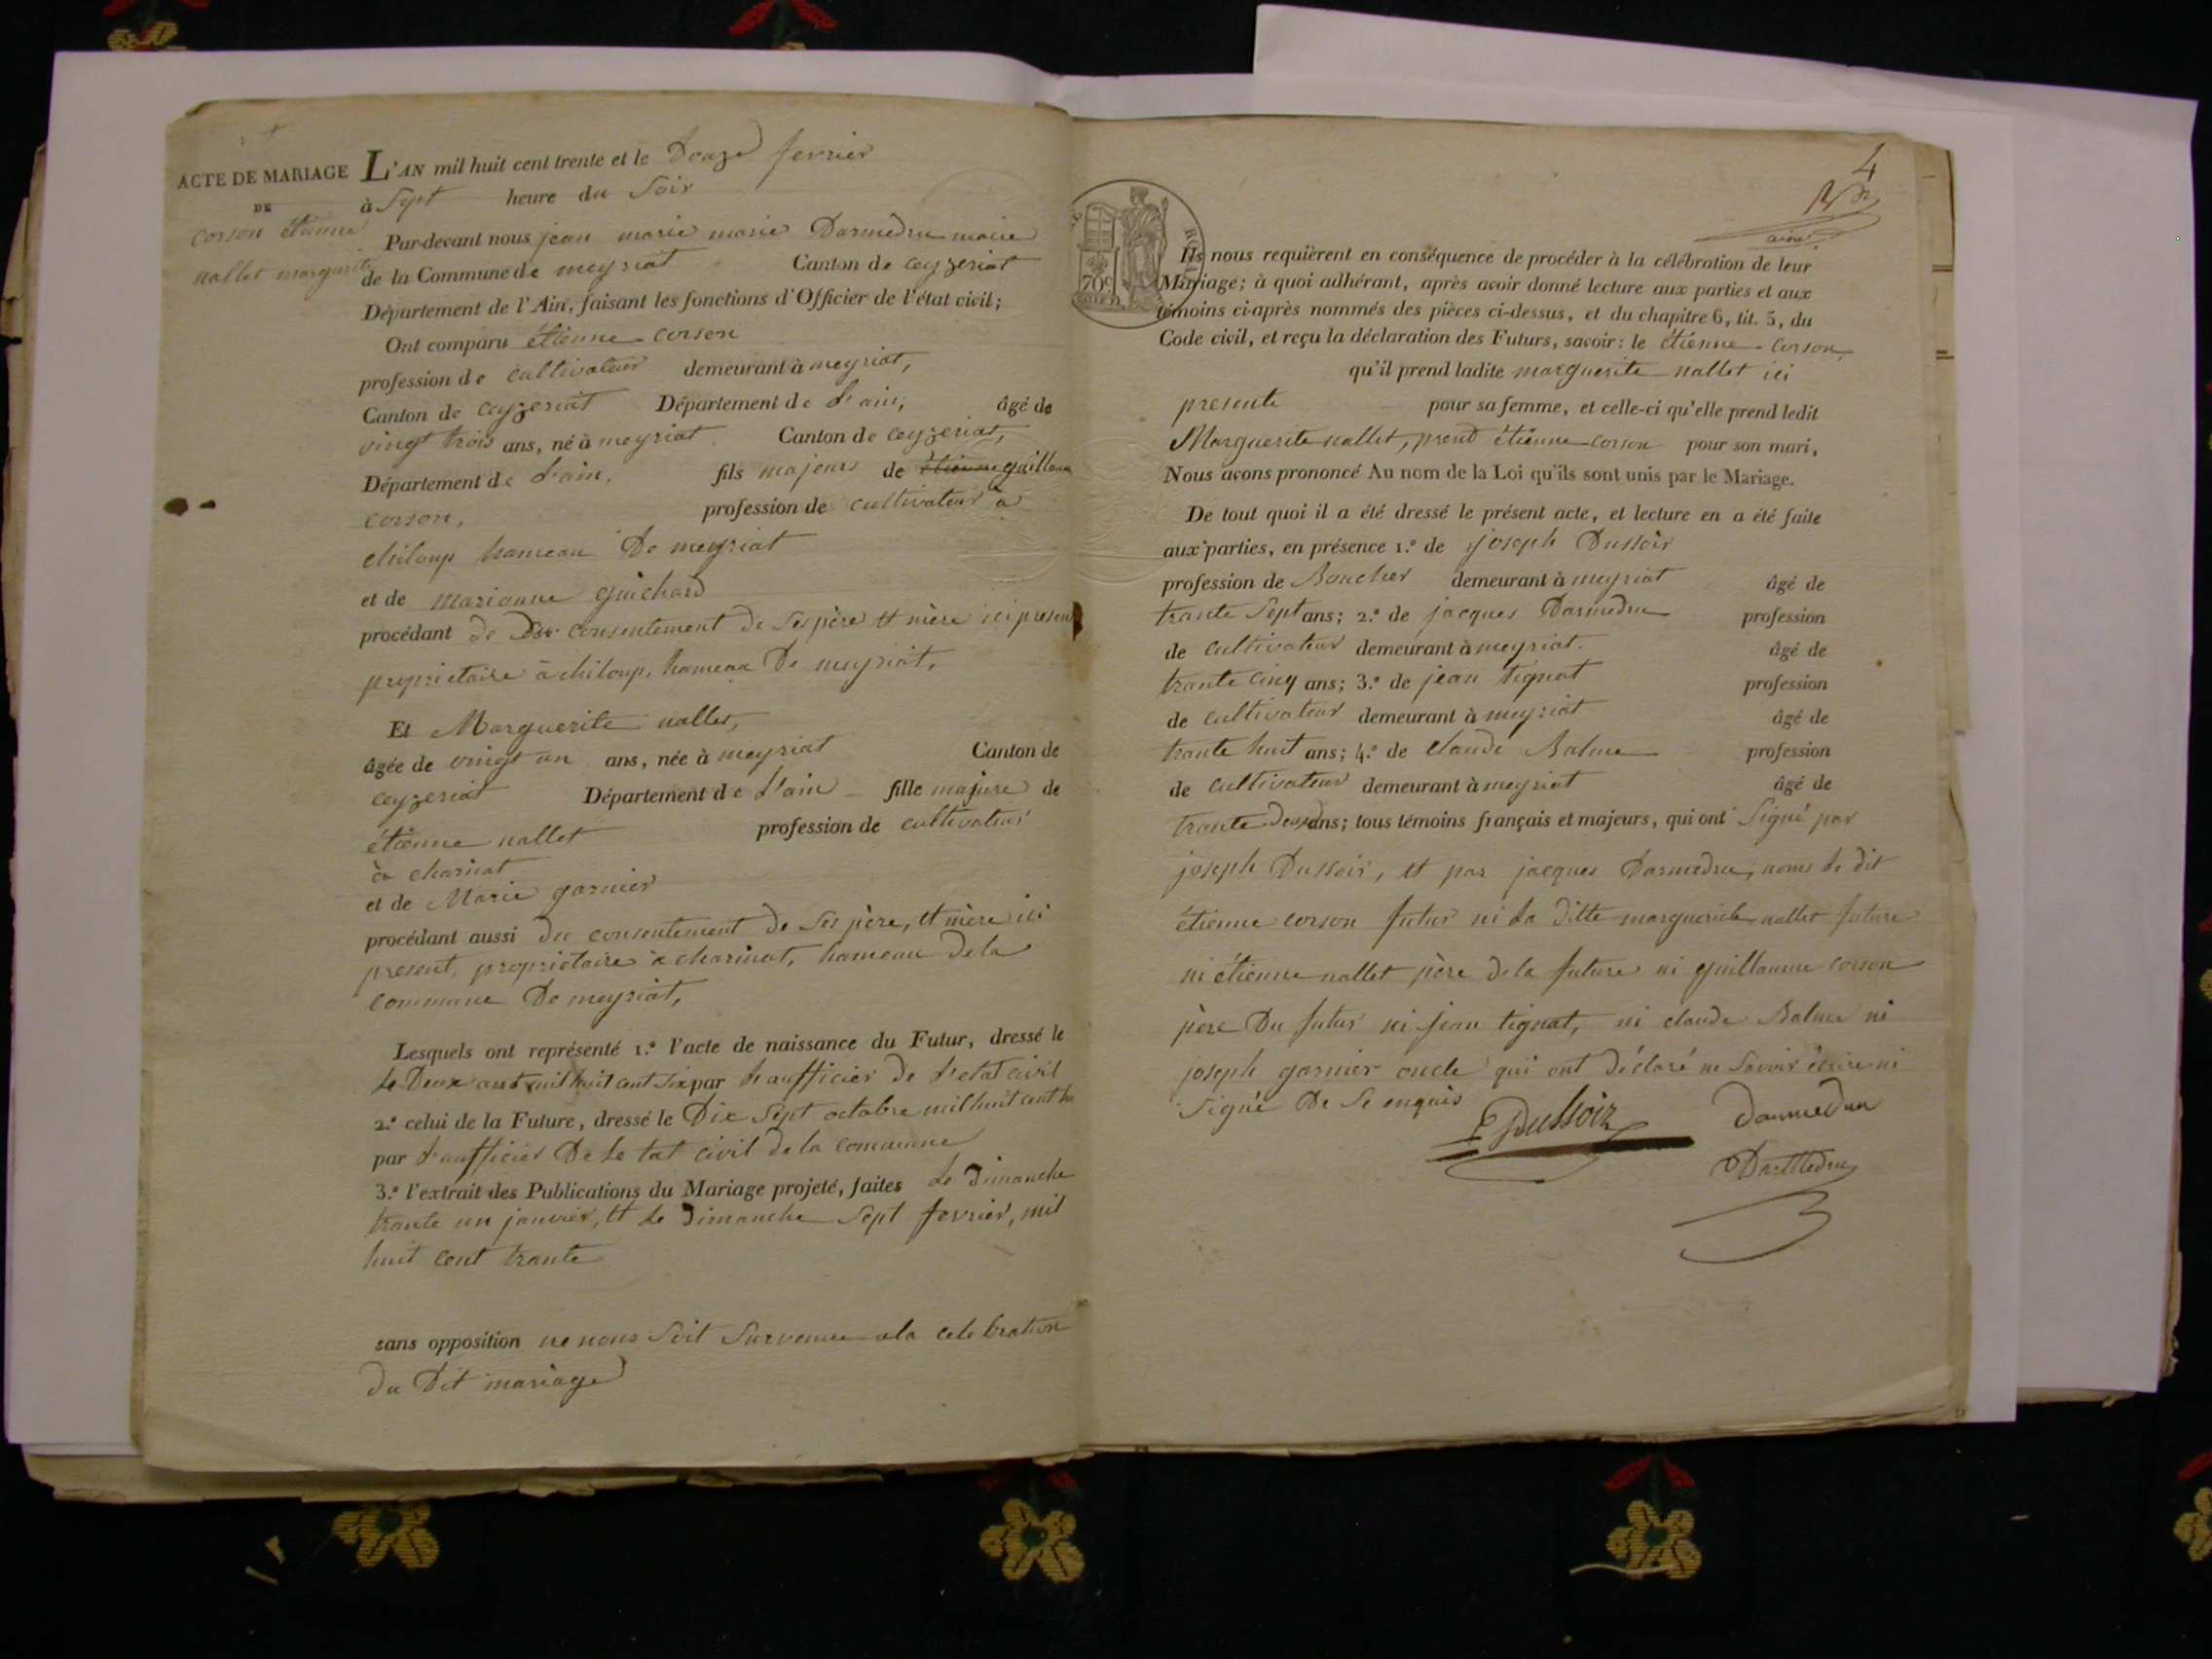 ACTE DE MARIAGE
DE
corson étienne
nallet marguerite
L'AN mil huit cent trente et le Douze fevrier
à Sept heure du Soir
Par-devant nous jean marie marie Darmedru maire
de la Commune de meyriat Canton de ceyzeriat
Département de l'Ain, faisant les fonctions d'Officier de l'état civil;
Ont comparu étienne corson
profession de cultivateur demeurant à meyriat,
Canton de ceyzeriat Département de l'ain, âgé de
vingt trois ans, né à meyriat Canton de ceyzeriat,
Département de l'ain, fils majeur de étienne guillaume
corson, profession de cultivateur à
chiloup hameau De meyriat
et de marianne guichard
procédant de consentement de ses père et mère ici present
proprietaire à chiloup, hameau De meyriat,
Et Marguerite nallet,
âgée de vingt un ans, née à meyriat Canton de
ceyzeriat Département de l'ain fille majure de
étienne nallet profession de cultivateur
à charinat
et de Marie garnier
procédant aussi du consentement de Ses père, et mère ici
present, proprietaire a charinat, hameau dela
commune De meyriat,
Lesquels ont représenté 1.º l'acte de naissance du Futur, dressé le
Le Deux aut mil huit cent six par l'aufficier de l'etat civil
2.º celui de la Future, dressé le Dix Sept octobre mil huit cent
par l'aufficier De le tat civil dela comunne
3.º l'extrait des Publications du Mariage projeté, faites Le Dimanche
trante un janvier, et le Dimanche Sept fevrier, mil
huit cent trante
sans opposition ne nous Soit Survenue ala celebration
du Dit mariage
4
ainé
70c
Ils nous requièrent en conséquence de procéder à la célébration de leur
Mariage; à quoi adhérant, après avoir donné lecture aux parties et aux
témoins ci-après nommés des pièces ci-dessus, et du chapitre 6, tit. 5, du
Code civil, et reçu la déclaration des Futurs, savoir: le étienne corson
qu'il prend ladite marguerite nallet ici
presente pour sa femme, et celle-ci qu'elle prend ledit
Marguerite nallet, prend étienne corson pour son mari,
Nous avons prononcé Au nom de la Loi qu'ils sont unis par le Mariage.
De tout quoi il a été dressé le présent acte, et lecture en a été faite
aux parties, en présence 1.º de joseph Dussoir
profession de Boucher demeurant à meyriat âgé de
trante Sept ans; 2.º de jacques Darmedru profession
de cultivateur demeurant à meyriat. âgé de
trante cinq ans; 3.º de jean tignat profession
de cultivateur demeurant à meyriat âgé de
trante huit ans; 4.º de claude Balme profession
de cultivateur demeurant à meyriat âgé de
trante deux ans; tous témoins français et majeurs, qui ont Signé par
joseph Dussoir, et par jacques Darmedru, nome le dit
étienne corson futur ni la ditte marguerite nallet future
ni étienne nallet père dela future ni guillaume corson
père Du futur ni jean tignat, ni claude Balme ni
joseph garnier oncle qui ont déclaré ne Savoir écrire ni
Signé De Se enquis
Dussoir Darmedru
Darmedru